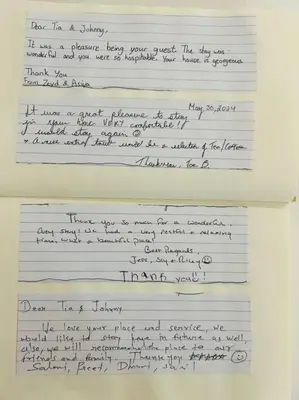 Dear Tia & Johnny,
It was a pleasure being your guest. The stay was
wonderful and you were so hospitable. Your house is georgeous
Thank You
From Zayd & Asiya
May 30, 2024
It was a great pleasure to stay
in your home VERY comfortable!!
would stay again ☺
* A nice extra touch would be a selection of Tea/Coffee
Thankyou, Joe B.
Thank you so much for a wonderful
stay! We had a very restful & relaxing
time. What a beautiful place!
Best Regards,
Jess, & Riley ☺
Thank you!!
Dear Tia & Johnny
We love your place and service, we
would like to stay here in future as well,
also, we will recommend the place to our
friends and family. Thank you ☺
Saloni, Preet,